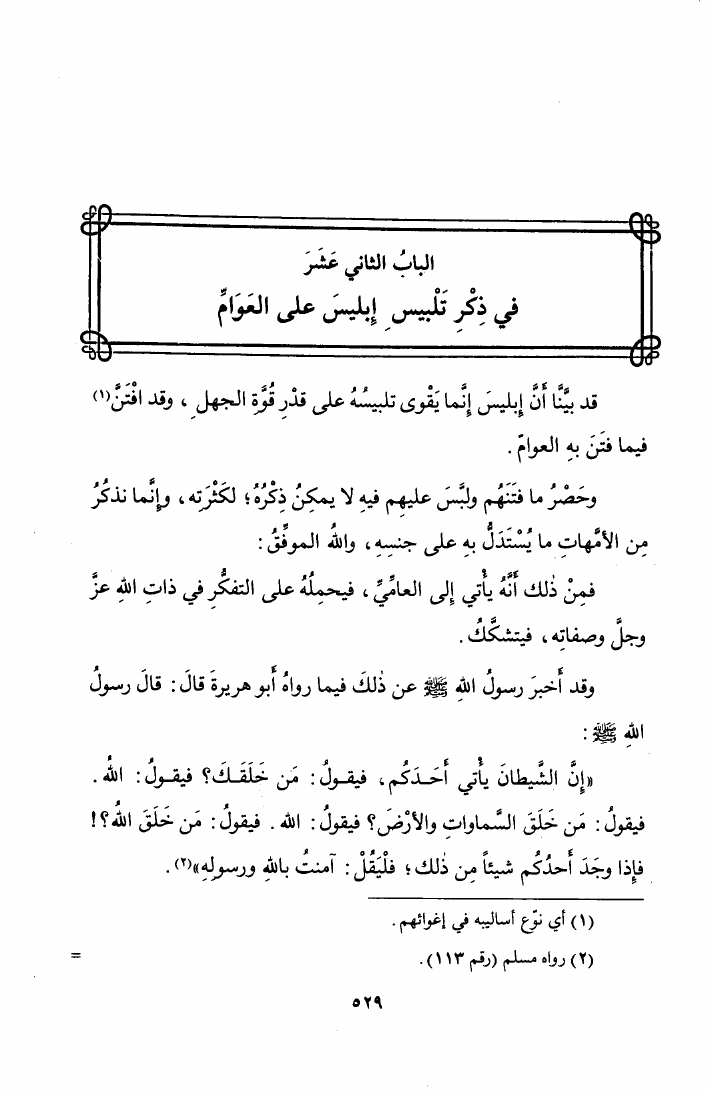 البابُ الثاني عَشَرَ
في ذِكْرِ تَلْبيسِ إبليسَ على العَوَامِّ
قد بيَّنَّا أَنَّ إبليسَ إِنَّما يَقْوى تلبيسُهُ على قدْرِ قُوَّةِ الجهلِ، وقد افْتَنَّ(١)
فيما فتَنَ بهِ العوامّ.
وحَصْرُ ما فتَنَهُم ولبَّسَ عليهِم فيهِ لا يمكِنُ ذِكْرُهُ؛ لكَثْرَتِه، وإِنَّما نذكُرُ
مِن الأمَّهاتِ ما يُسْتَدَلُّ بهِ على جنسِهِ، واللهُ الموفِّقُ:
فمِنْ ذٰلك أَنَّهُ يأْتي إِلى العامِّيِّ، فيحمِلُهُ على التفكُّرِ في ذاتِ اللهِ عزَّ
وجلَّ وصفاتِه، فيتشكَّكُ.
وقد أَخبرَ رسولُ اللهِ ﷺ عن ذٰلكَ فيما رواهُ أَبو هريرةَ قالَ: قالَ رسولُ
اللهِ ﷺ:
«إِنَّ الشَّيطانَ يأْتي أَحَـدَكُم، فيقـولُ: مَن خَلَقَـكَ؟ فيقـولُ: اللهُ.
فيقولُ: مَن خَلَقَ السَّماواتِ والأرْضَ؟ فيقولُ: الله. فيقولُ: مَن خَلَقَ اللهُ؟!
فإِذا وجَدَ أَحدُكُم شيئاً مِن ذلك؛ فلْيَقُلْ: آمنتُ باللهِ ورسولِهِ»(٢).
(١) أي نوّع أساليبه في إغوائهم.
(٢) رواه مسلم (رقم ١١٣). =
٥٢٩